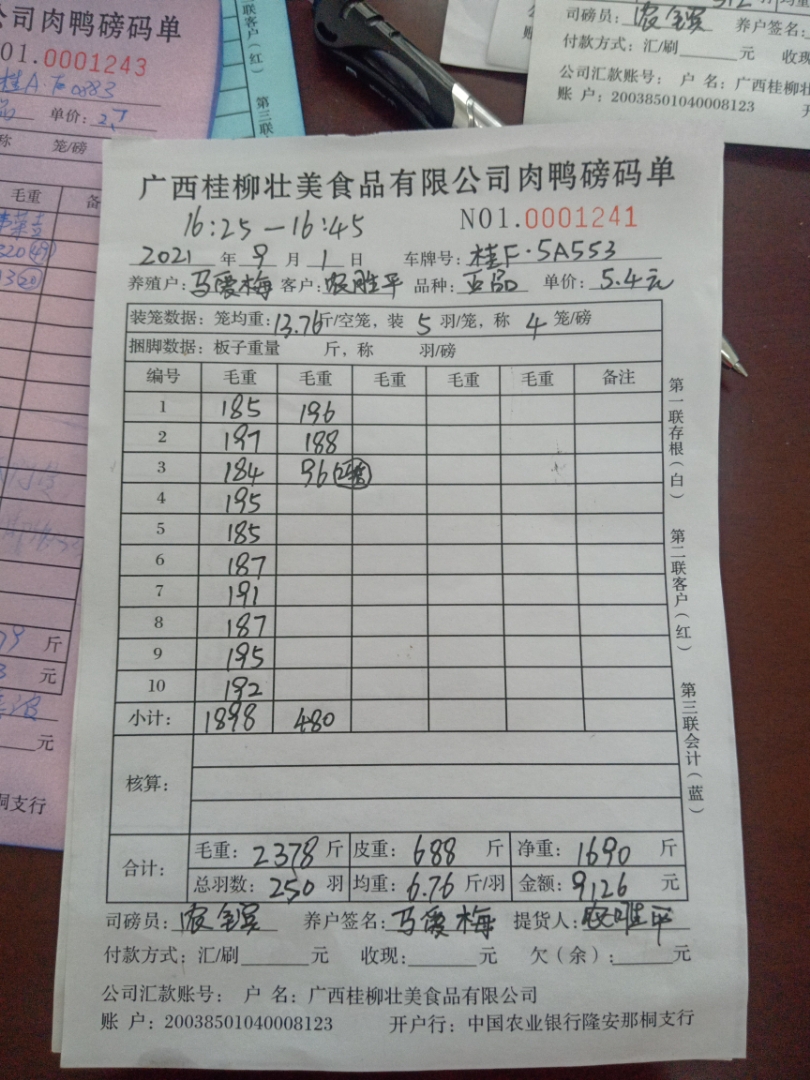 公司肉鸭磅码单
01.0001243
桂A·
单价:
称 笼/磅
毛重
斤
元
元
桐支行
联客户(红) 第三联
司磅员:农全宾 养户签名:
付款方式:汇/刷 元 收现
公司汇款账号: 户 名:广西桂柳壮
账 户:20038501040008123 开
广西桂柳壮美食品有限公司肉鸭磅码单
16:25-16:45 NO1.0001241
2021年9月1日 车牌号:桂F·5A553
养殖户:马爱梅 客户:农胜平 品种:正品 单价:5.4元
装笼数据:笼均重:13.76斤/空笼,装5羽/笼,称4笼/磅
捆脚数据:板子重量 斤,称 羽/磅
编号 毛重 毛重 毛重 毛重 毛重 备注
1 185 196
2 197 188
3 184 96
4 195
5 185
6 187
7 191
8 187
9 195
10 192
小计: 1898 480
核算:
合计: 毛重:2378斤 皮重:688斤 净重:1690斤
总羽数:250羽 均重:6.76斤/羽 金额:9126元
司磅员:农全宾 养户签名:马爱梅 提货人:农胜平
付款方式:汇/刷 元 收现: 元 欠(余): 元
公司汇款账号: 户 名:广西桂柳壮美食品有限公司
账 户:20038501040008123 开户行:中国农业银行隆安那桐支行
第一联存根(白) 第二联客户(红) 第三联会计(蓝)